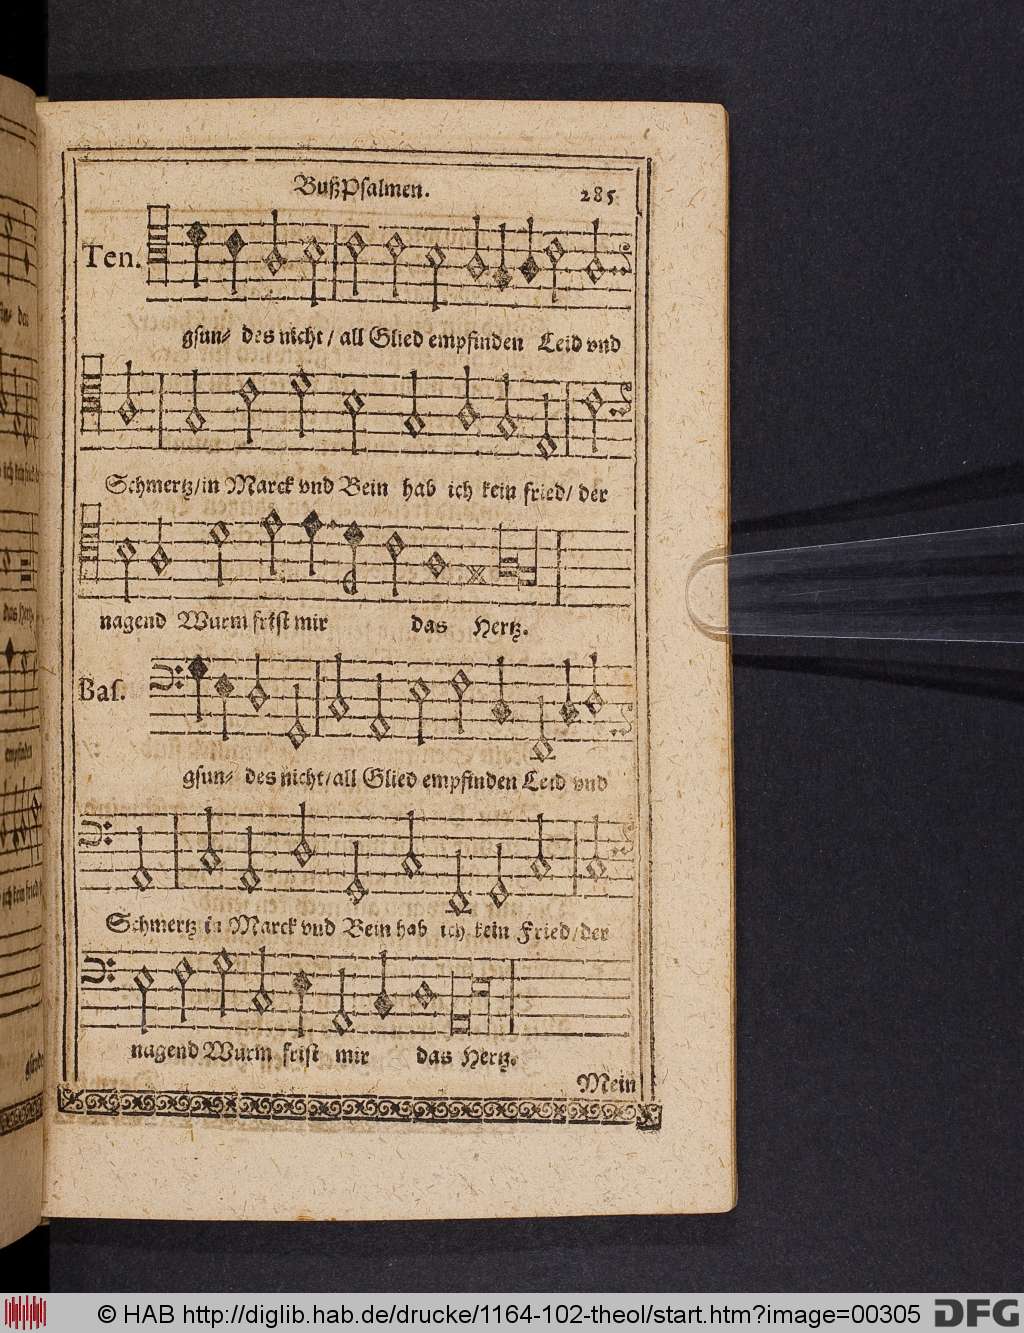 BußPſalmen. 285
Ten.
gſun⸗ des nicht / all Glied empfinden Leid vnd
Schmertz/in Marck vnd Bein hab ich kein fried/ der
nagend Wurm friſt mir das Hertz.
Baſ.
gſun⸗ des nicht/all Glied empfinden Leid vnd
Schmertz in Marck vnd Bein hab ich kein Fried/der
nagend Wurm friſt mir das Hertz.
Mein
© HAB http://diglib.hab.de/drucke/1164-102-theol/start.htm?image=00305 DFG